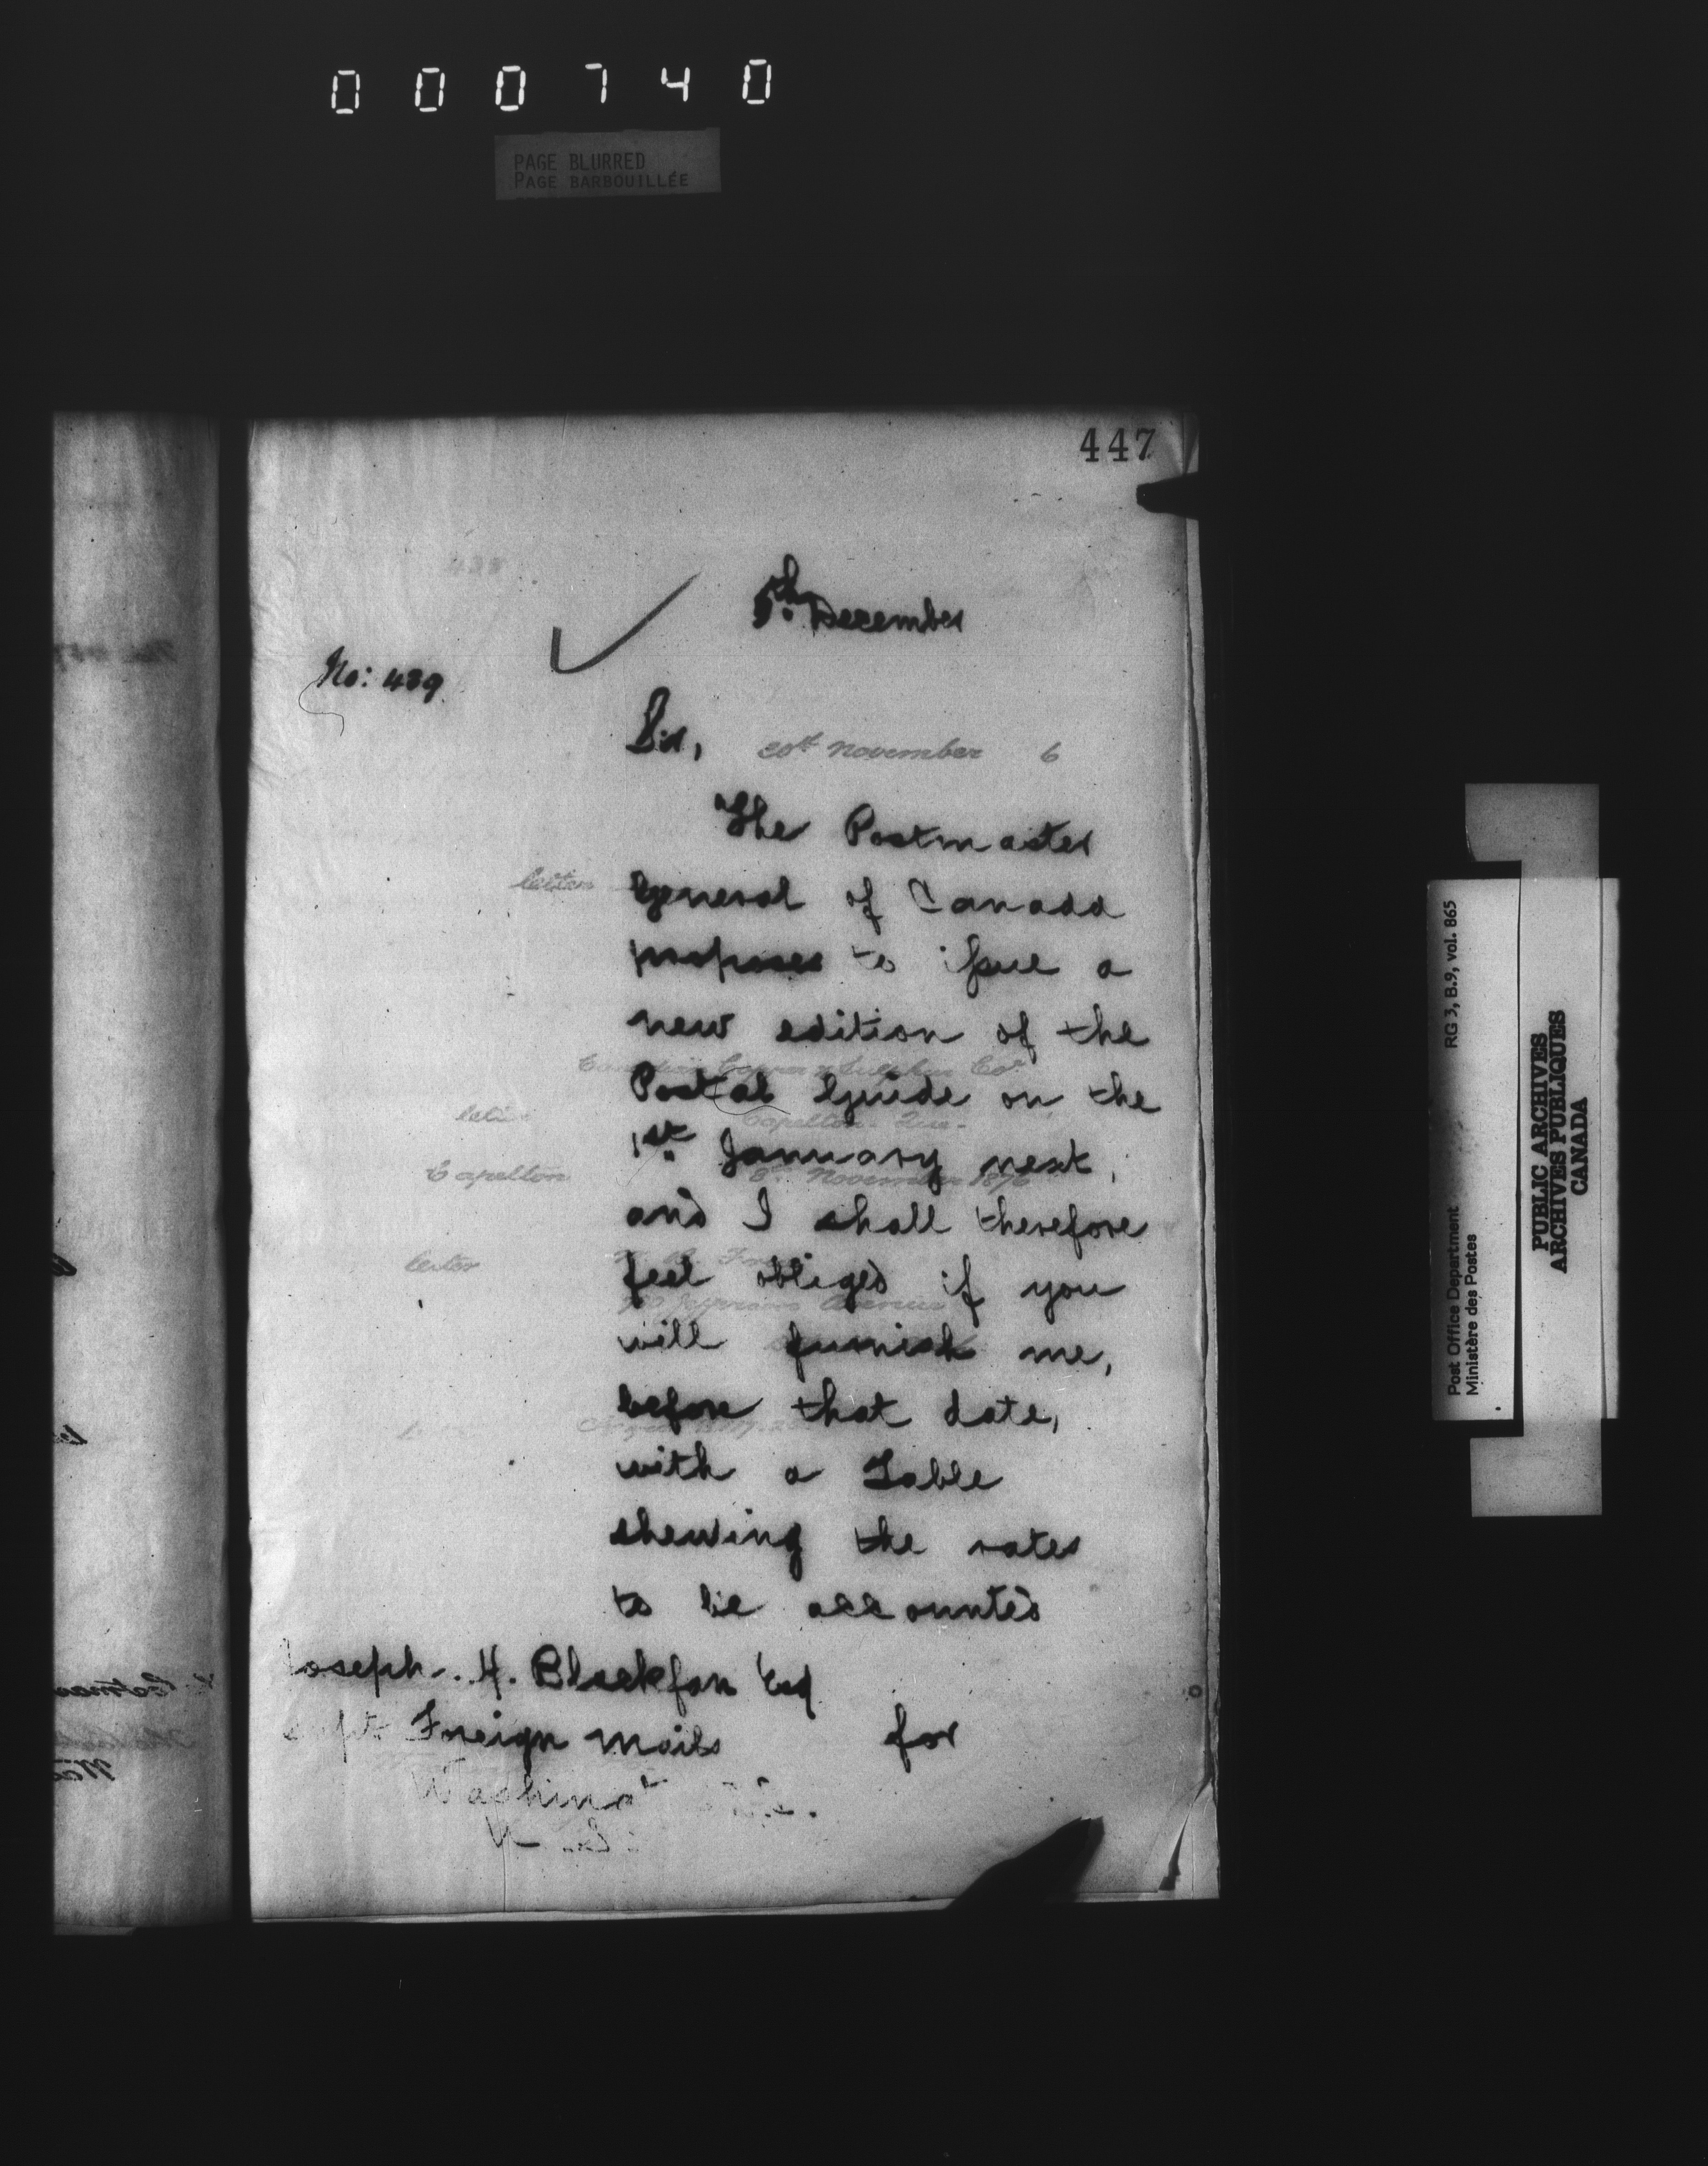 000740
PAGE BLURRED
PAGE BARBOUILLÉE
447
5th. December
No: 489
Sir,
20th November 6
The Postmaster
letter
General of Canada
proposes to issue a
new edition of the
Copper & Sulphur Co.
Postal Guide on the
Capelton. Que.
1st. January next,
Capelton
November 1876
and I shall therefore
letter
feel obliged if you
Avenue
will furnish me,
before that date,
with a Table
shewing the rates
to be accounted
Joseph. H. Blackfan Esq
Supt Foreign Mails
for
Washingt
RG 3, B.9, vol. 865
Post Office Department
Ministère des Postes
PUBLIC ARCHIVES
ARCHIVES PUBLIQUES
CANADA